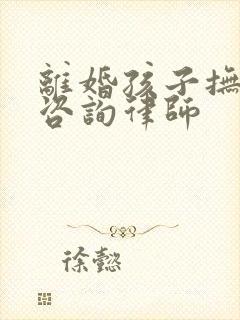 離婚孩子撫
咨詢律師
徐懿